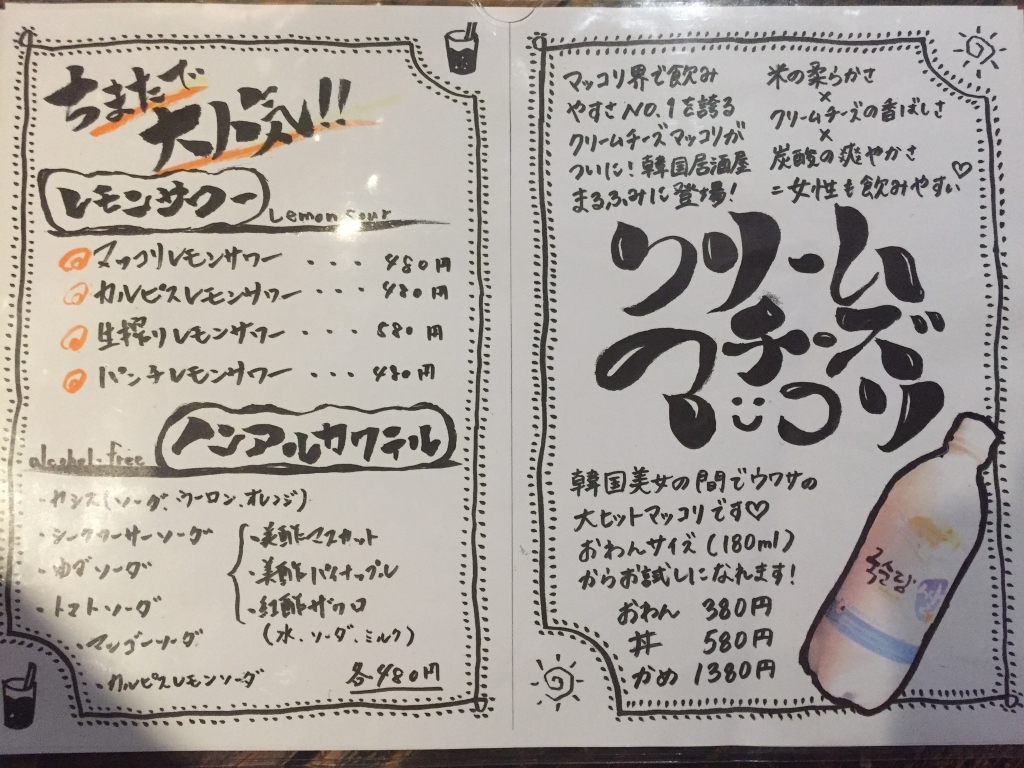 ちまたで
大人気!!
レモンサワー
Lemon sour
マッコリレモンサワー ・・・ 480円
カルピスレモンサワー ・・・ 480円
生搾りレモンサワー ・・・ 580円
パンチレモンサワー ・・・ 480円
ノンアルカクテル
alcohol free
・カシス(ソーダ、ウーロン、オレンジ)
・シークワーサーソーダ
・ゆずソーダ
・トマトソーダ
・マンゴーソーダ
・カルピスレモンソーダ
・美酢マスカット
・美酢パイナップル
・紅酢ザクロ
(水、ソーダ、ミルク)
各480円
マッコリ界で飲み
やすさNO.1を誇る
クリームチーズマッコリが
ついに!韓国居酒屋
まるふみに登場!
米の柔らかさ
×
クリームチーズの香ばしさ
×
炭酸の爽やかさ
=女性も飲みやすい♡
クリーム
チーズ
マッコリ
韓国美女の間でウワサの
大ヒットマッコリです♡
おわんサイズ(180ml)
からお試しになれます!
おわん 380円
丼 580円
かめ 1380円
국순당